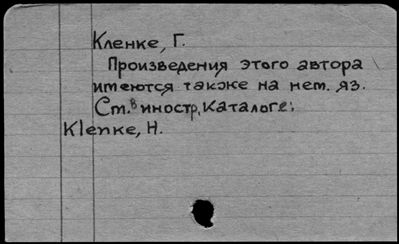 Кленке, Г.
Произведения этого автора
имеются также на нем. яз.
См. в иностр. каталоге:
Klenke, H.